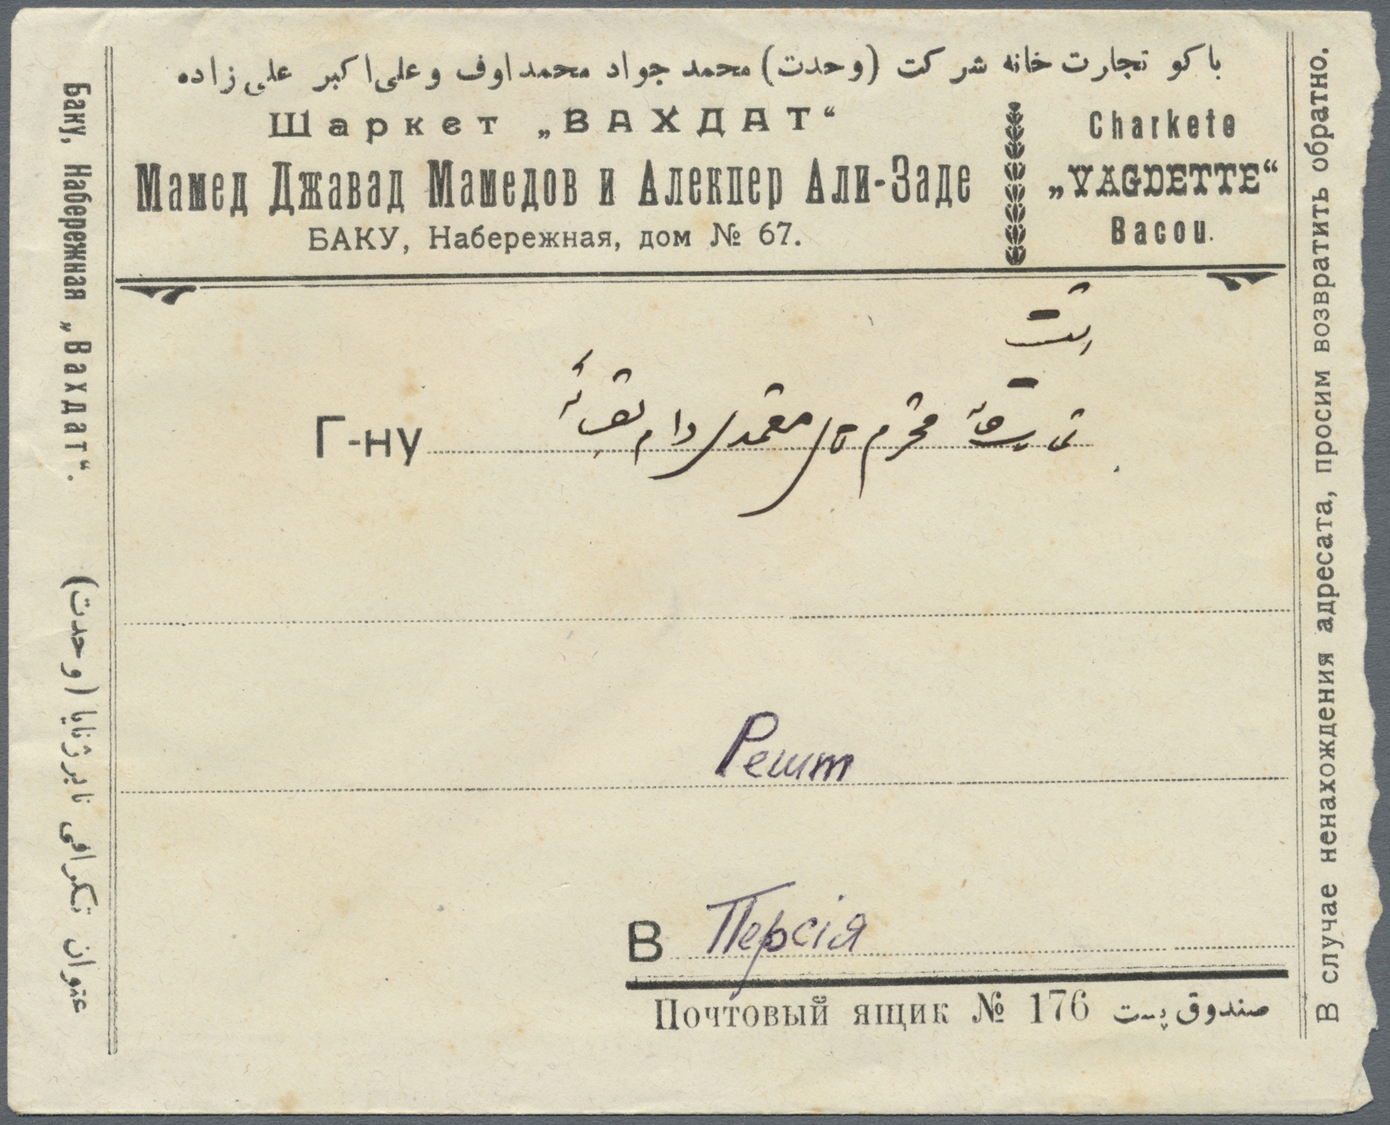 باکو تجارت خانه شرکت (وحدت) محمد جواد محمداوف و علی‌اکبر علی زاده
Шаркет „ВАХДАТ“
Мамед Джавад Мамедов и Алекпер Али-Заде
БАКУ, Набережная, дом № 67.
Charkete
„VAGDETTE“
Bacou.
Баку, Набережная „Вахдат“.
عنوان تلگرافی نابرژنایا (وحدت)
رشت
Г-ну
محترم
دام
Решт
В Персія
Почтовый ящик № 176 صندوق پست
В случае ненахождения адресата, просим возвратить обратно.